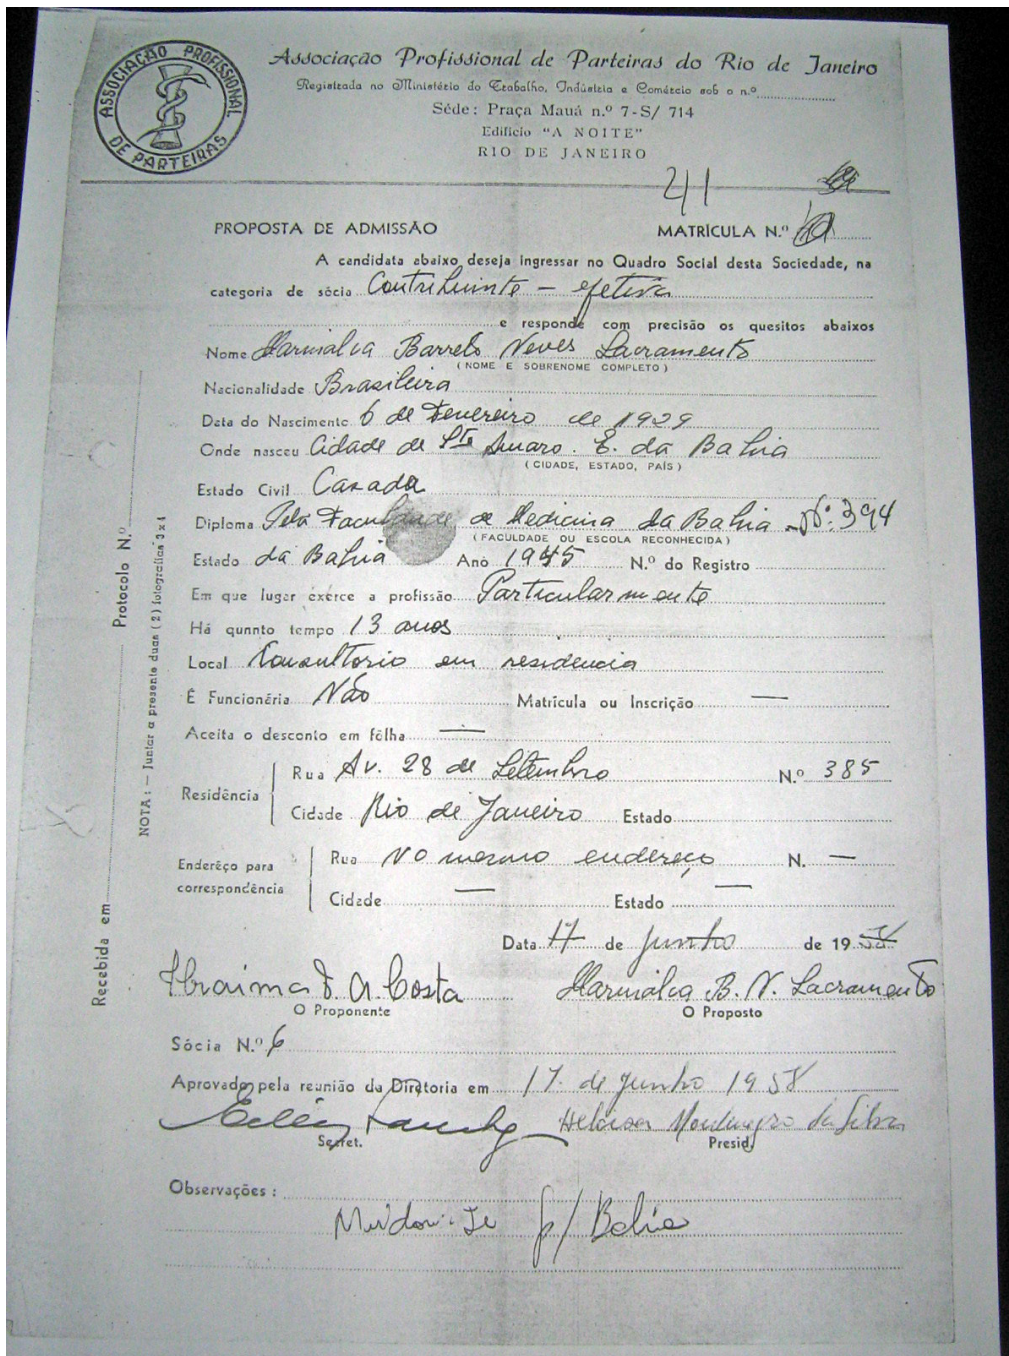 ASSOCIAÇÃO PROFISSIONAL DE PARTEIRAS
Associação Profissional de Parteiras do Rio de Janeiro
Registrada no Ministério do Trabalho, Indústria e Comércio sob o n.º
Séde: Praça Mauá n.º 7-S/ 714
Edifício "A NOITE"
RIO DE JANEIRO
211
PROPOSTA DE ADMISSÃO MATRÍCULA N.º
A candidata abaixo deseja ingressar no Quadro Social desta Sociedade, na
categoria de sócia Contribuinte - efetiva
e responde com precisão os quesitos abaixos
Nome Marinalva Barreto Neves Sacramento
(NOME E SOBRENOME COMPLETO)
Nacionalidade Brasileira
Data do Nascimento 6 de Fevereiro de 1929
Onde nasceu Cidade de Sto Amaro. E. da Bahia
(CIDADE, ESTADO, PAÍS)
Estado Civil Casada
Diploma Pela Faculdade de Medicina da Bahia - Nº: 394
(FACULDADE OU ESCOLA RECONHECIDA)
Estado da Bahia Ano 1945 N.º do Registro
Em que lugar exerce a profissão Particularmente
Há qunnto tempo 13 anos
Local Consultorio em residencia
É Funcionéria Não Matrícula ou Inscrição —
Aceita o desconto em fôlha —
Residência
Rua Av. 28 de Setembro N.º 385
Cidade Rio de Janeiro Estado
Enderêço para correspondência
Rua No mesmo endereço N. —
Cidade — Estado —
Data 17 de Junho de 1958
A. Costa Marinalva B. N. Sacramento
O Proponente O Proposto
Sócia N.º 6
Aprovado pela reunião da Diretoria em 17 de Junho 1958
Heloisa Montenegro da Silva
Secret. Presid.
Observações:
Mudou-se p/ Bahia
Recebida em Protocolo N.º
NOTA: — Juntar a presente duas (2) fotografias 3x4